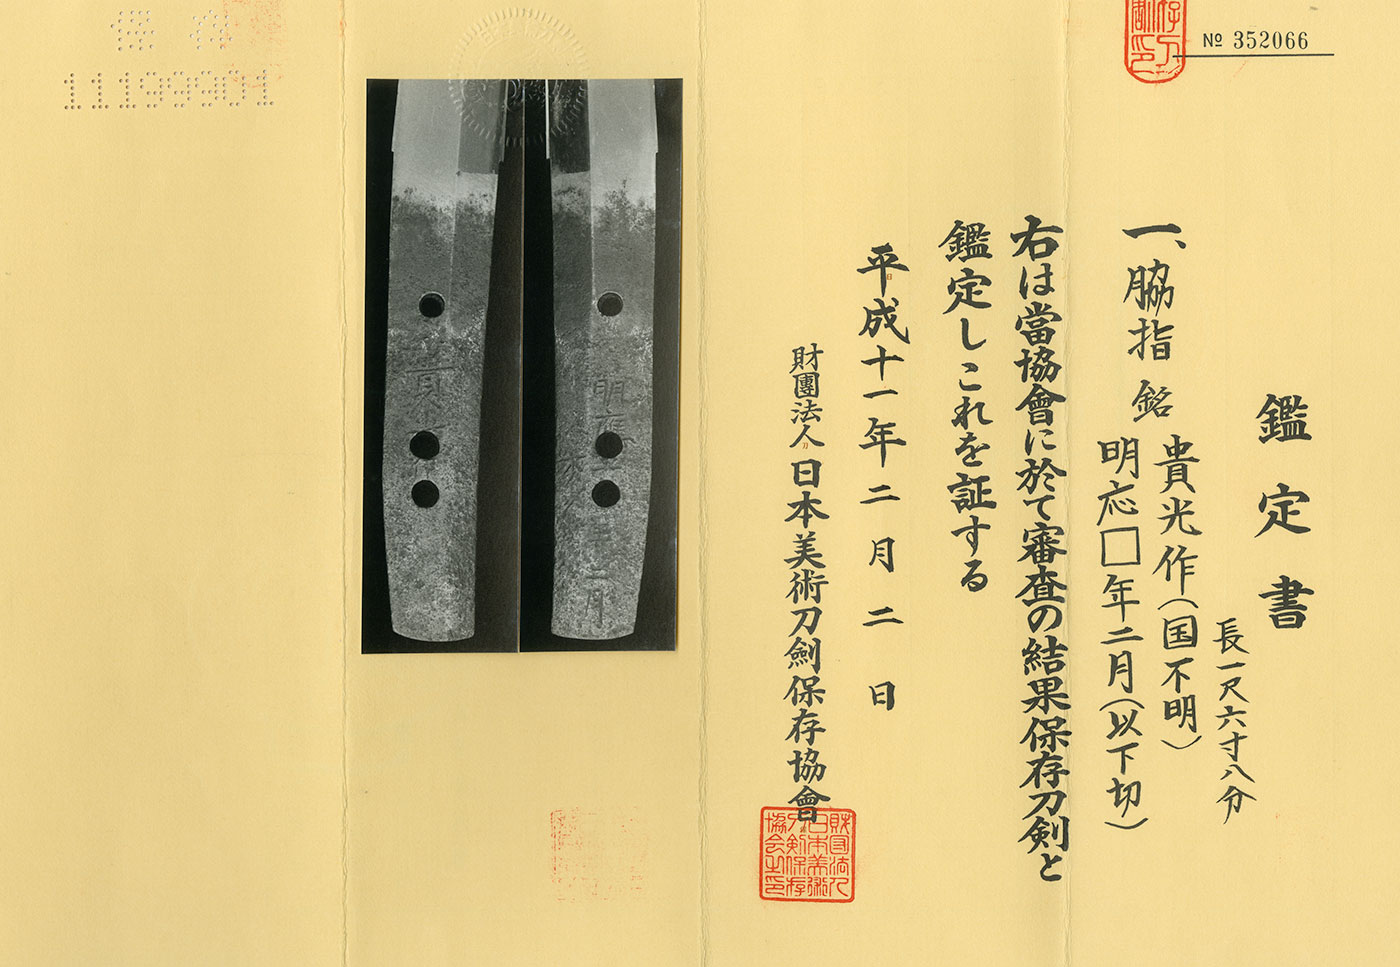 № 352066
鑑定書
長一尺六寸八分
一、脇指 銘
貴光作(国不明)
明応□年二月(以下切)
右は當協會に於て審査の結果保存刀剣と
鑑定しこれを証する
平成十一年二月二日
財團法人日本美術刀劍保存協會
財団法人
日本美術
刀剣保存
協会之印
保存
11199901
明應
二月